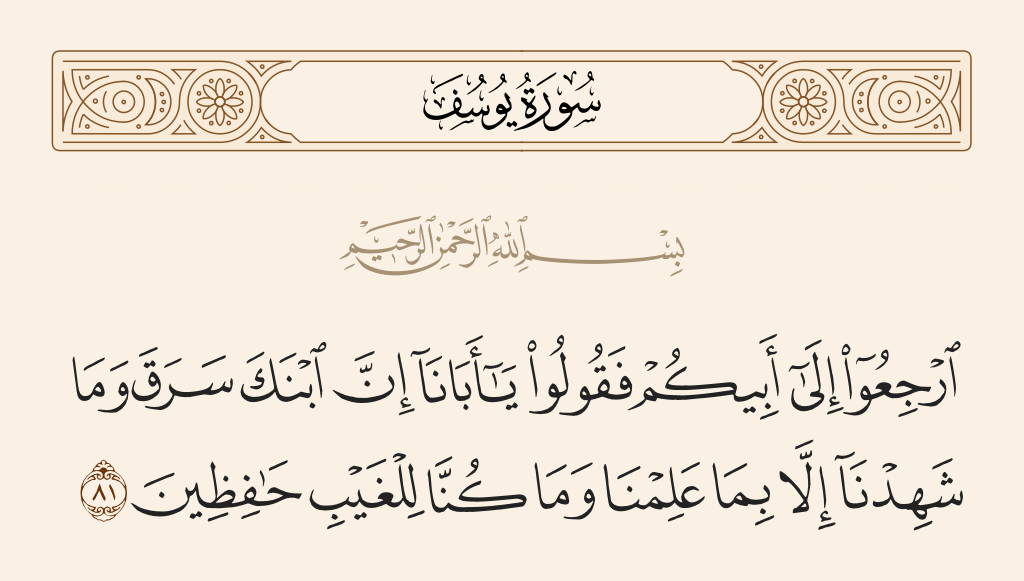 سُورَةُ يُوسُفَ
بِسْمِ ٱللَّهِ ٱلرَّحْمَٰنِ ٱلرَّحِيمِ
ٱرْجِعُوٓا۟ إِلَىٰٓ أَبِيكُمْ فَقُولُوا۟ يَـٰٓأَبَانَآ إِنَّ ٱبْنَكَ سَرَقَ وَمَا
شَهِدْنَآ إِلَّا بِمَا عَلِمْنَا وَمَا كُنَّا لِلْغَيْبِ حَـٰفِظِينَ ٨١